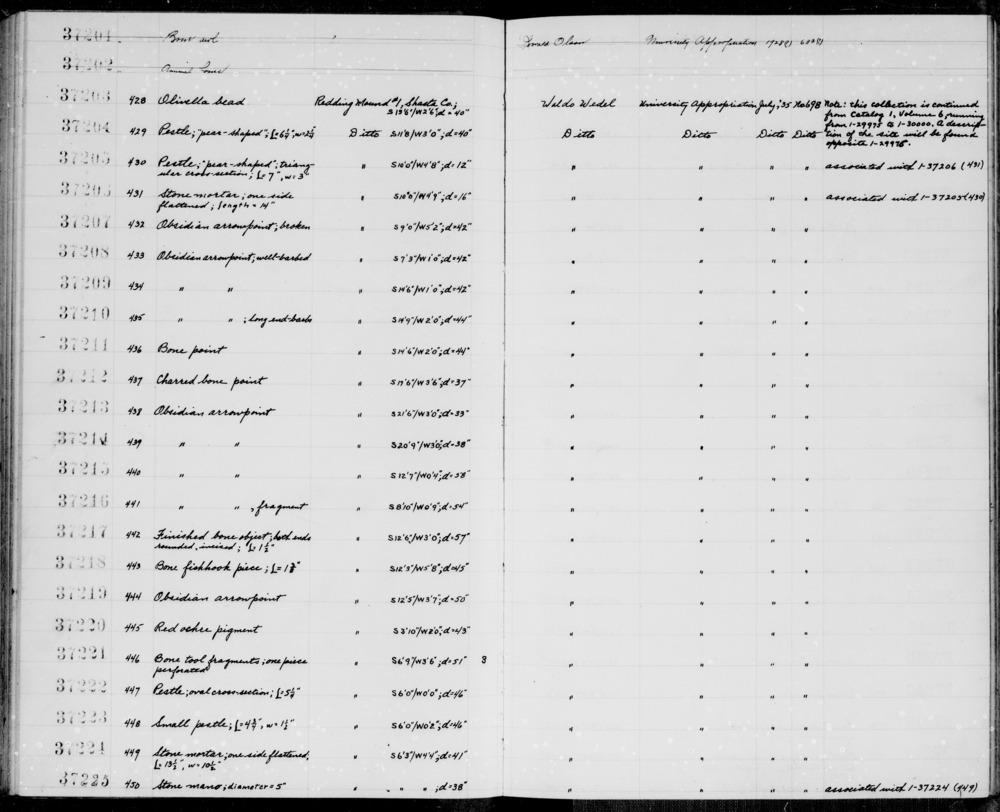 37201. Bone awl Ronald Olson University Appropriation
37202
37203 428 Olivella bead Redding Mound #1, Shasta Co.; Waldo Wedel University Appropriation July, '35 No 698 Note: this collection is continued
S 13'6"/W2'6"; d=40" from Catalog 1, Volume 6, running
from 1-29975 to 1-30000. A descrip-
37204 429 Pestle; "pear-shaped"; L=6½", Ditto S11'8"/W3'0"; d=40" Ditto Ditto Ditto Ditto tion of the site will be found
opposite 1-29975.
37205 430 Pestle; "pear-shaped"; triang- " S10'0"/W4'8"; d=12" " " " " associated with 1-37206 (431)
ular cross-section; L=7", w=3"
37206 431 Stone mortar; one side " S10'0"/W4'9"; d=16" " " " " associated with 1-37205 (430)
flattened; length=14"
37207 432 Obsidian arrowpoint; broken " S9'0"/W5'2"; d=42" " " " "
37208 433 Obsidian arrowpoint; well-barbed " S7'3"/W1'0"; d=42" " " " "
37209 434 " " " S14'6"/W1'0"; d=42" " " " "
37210 435 " " ; long end-barbs " S14'9"/W2'0"; d=44" " " " "
37211 436 Bone point " S14'6"/W2'0"; d=44" " " " "
37212 437 Charred bone point " S17'6"/W3'6"; d=37" " " " "
37213 438 Obsidian arrowpoint " S21'6"/W3'0"; d=33" " " " "
37214 439 " " " S20'9"/W3'0"; d=38" " " " "
37215 440 " " " S12'7"/W0'4"; d=38" " " " "
37216 441 " " , fragment " S8'10"/W0'9"; d=54" " " " "
37217 442 Finished bone object; both ends " S12'6"/W3'0"; d=57" " " " "
rounded, incised; L=1½"
37218 443 Bone fishhook piece; " S12'3"/W5'8"; d=45" " " " "
37219 444 Obsidian arrowpoint " S12'5"/W3'7"; d=50" " " " "
37220 445 Red ochre pigment " S3'10"/W2'0"; d=43" " " " "
37221 446 Bone tool fragments; one piece " S6'9"/W3'6"; d=51" 3 " " " "
perforated
37222 447 Pestle; oval cross-section; L=5¼" " S6'0"/W0'0"; d=46" " " " "
37223 448 Small pestle; L=4¾", w=1½" " S6'0"/W0'2"; d=46" " " " "
37224 449 Stone mortar; one side flattened, " S6'3"/W4'4"; d=41" " " " "
L=13½", w=10½"
37225 450 Stone mano; diameter=5" " " " ; d=38" " " " " associated with 1-37224 (449)